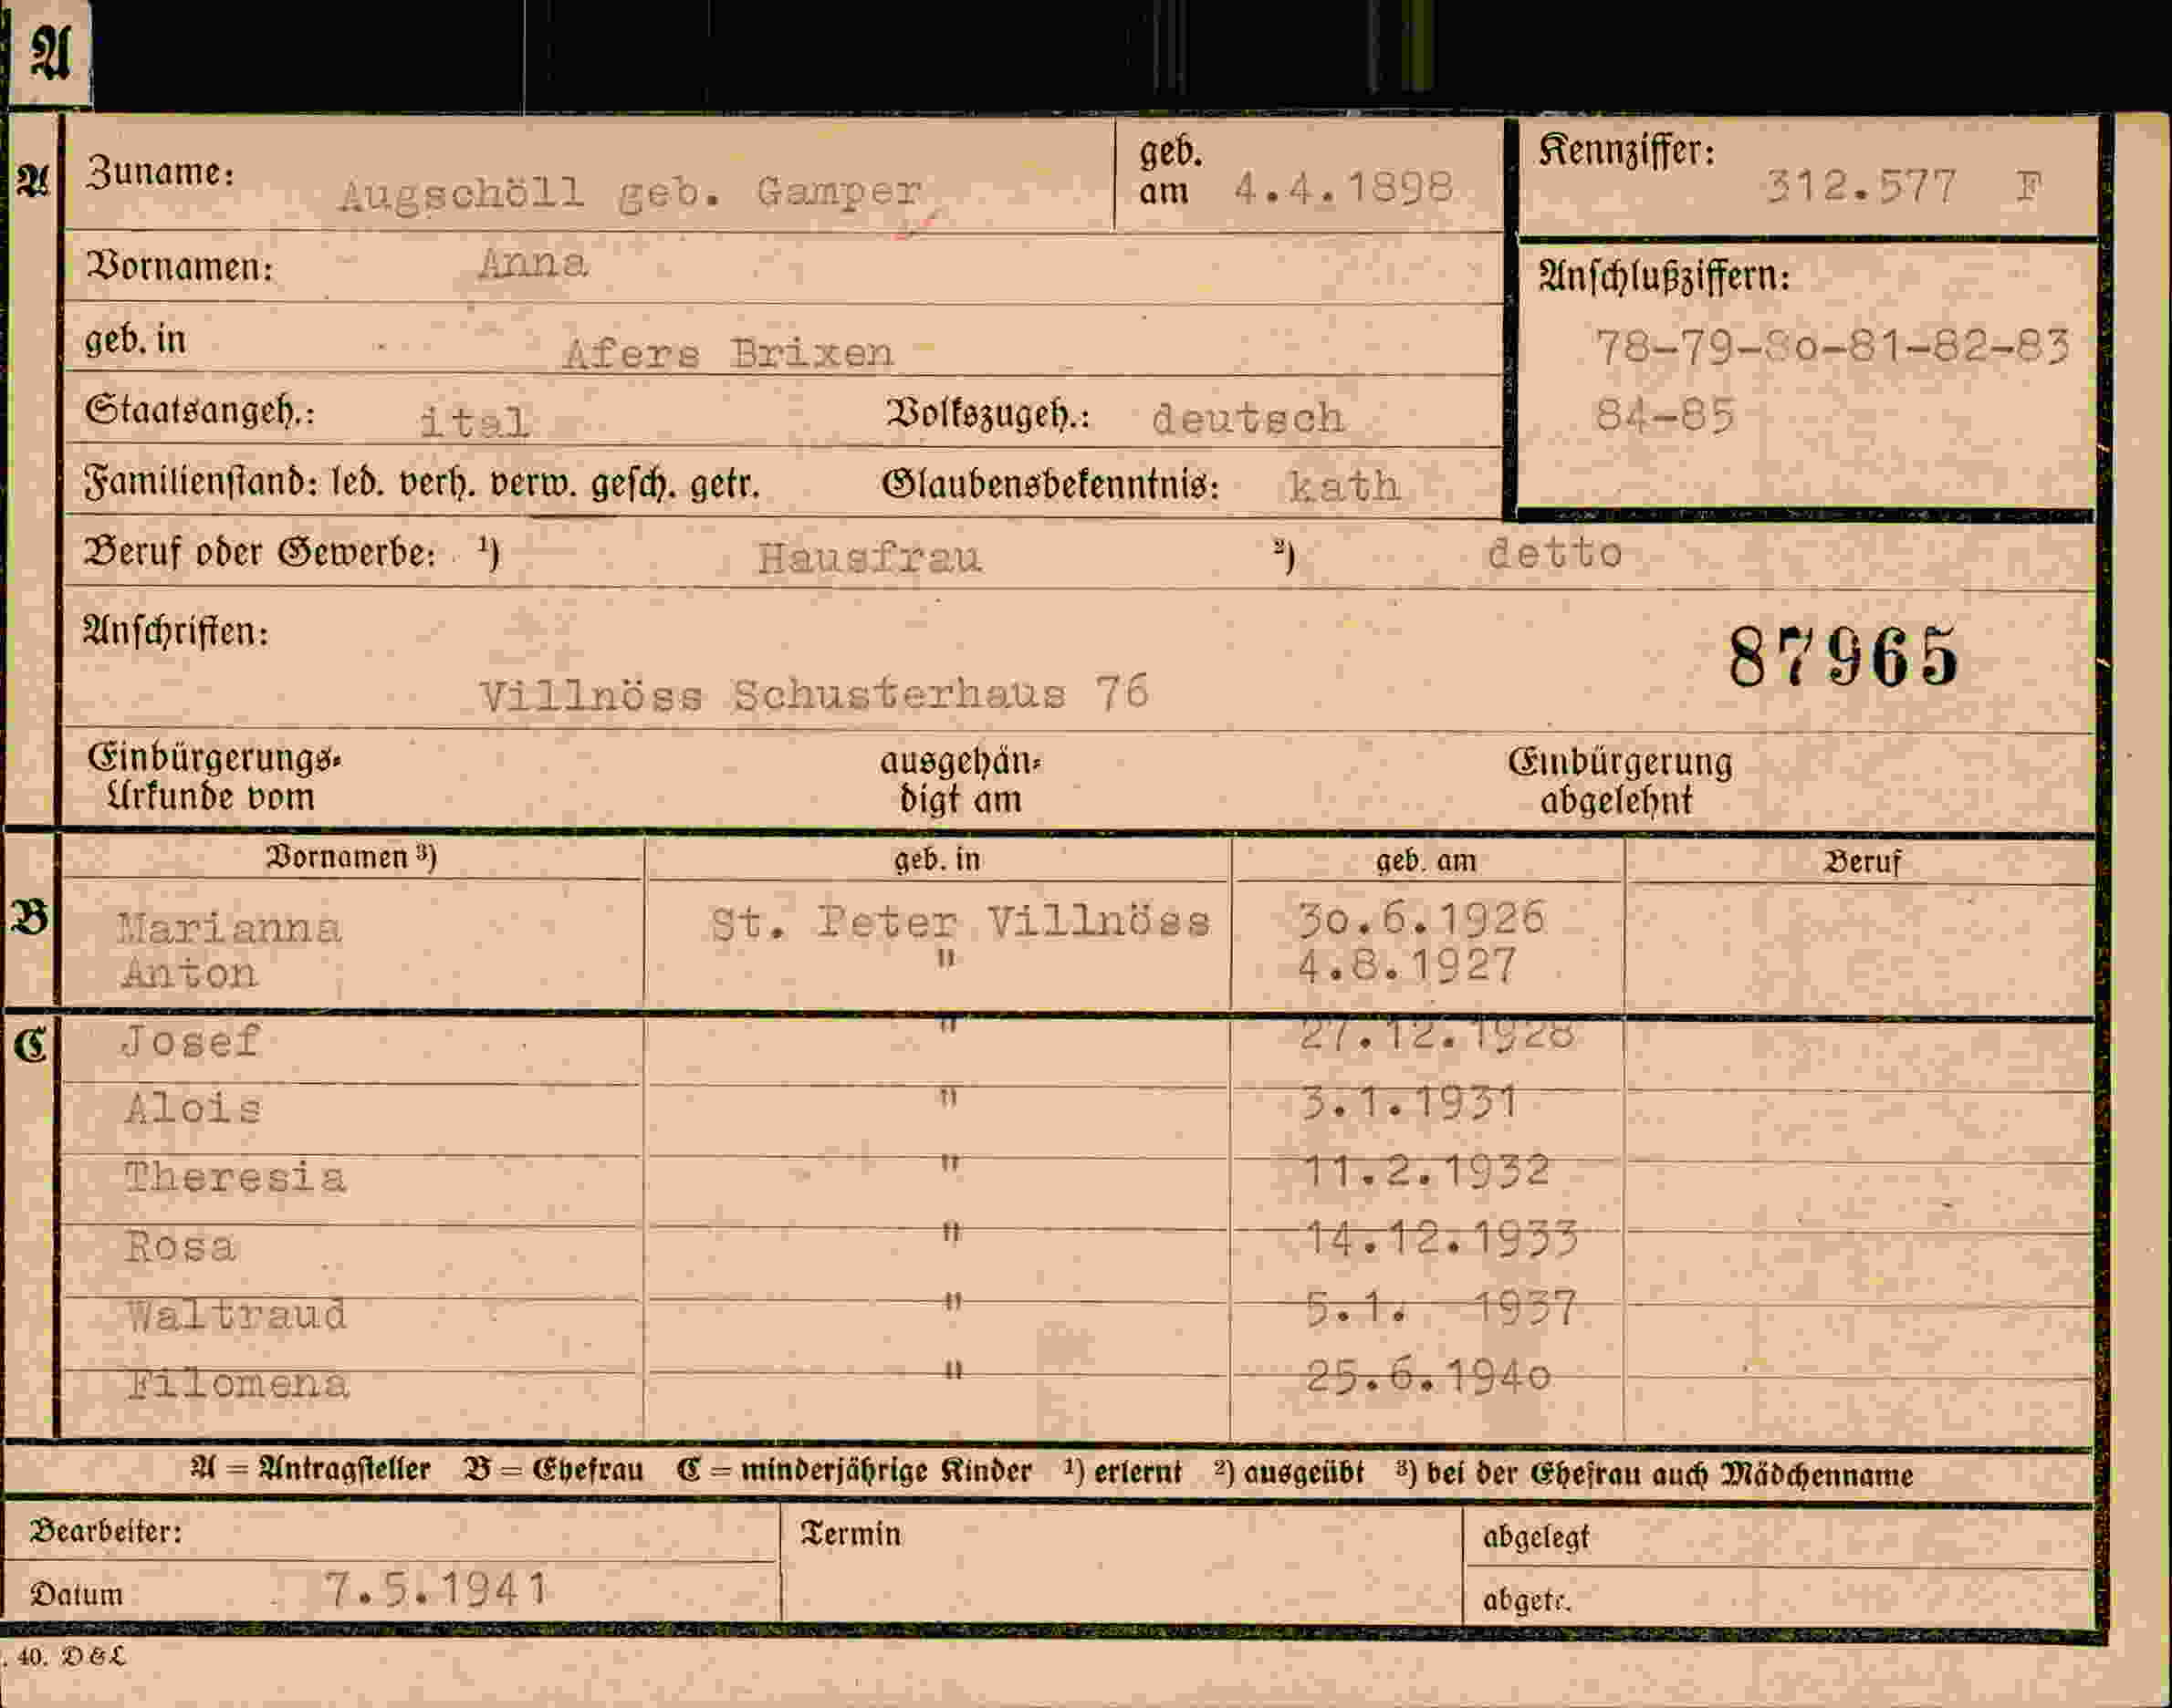 A
A
Zuname: Augschöll geb. Gamper
geb. am 4.4.1898
Kennziffer: 312.577 F
Vornamen: Anna
Anschlußziffern:
78-79-8o-81-82-83
84-85
geb. in Afers Brixen
Staatsangeh.: ital Volkszugeh.: deutsch
Familienstand: led. verh. verw. gesch. getr. Glaubensbekenntnis: kath
Beruf oder Gewerbe: ¹) Hausfrau ²) detto
Anschriften:
87965
Villnöss Schusterhaus 76
Einbürgerungs- ausgehän- Einbürgerung
Urkunde vom digt am abgelehnt
Vornamen ³) geb. in geb. am Beruf
B
Marianna St. Peter Villnöss 3o.6.1926
Anton " 4.8.1927
C
Josef " 27.12.1928
Alois " 3.1.1931
Theresia " 11.2.1932
Rosa " 14.12.1933
Waltraud " 5.1. 1937
Filomena " 25.6.194o
A = Antragsteller B = Ehefrau C = minderjährige Kinder ¹) erlernt ²) ausgeübt ³) bei der Ehefrau auch Mädchenname
Bearbeiter: Termin abgelegt
Datum 7.5.1941 abgetr.
. 40. D & L